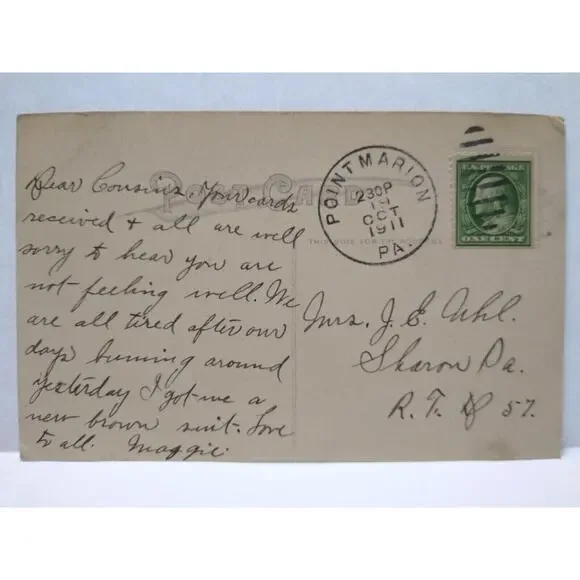 POST CARD
Dear Cousins, Your cards
received & all are well
sorry to hear you are
not feeling well. We
are all tired after our
days bumming around
yesterday I got me a
new brown suit. Love
to all. Maggie
POINT MARION
230P
19
OCT
1911
PA.
U.S. POSTAGE
ONE CENT
THIS SIDE FOR THE ADDRESS
Mrs. J. E. Uhl.
Sharon Pa.
R. T. 57.